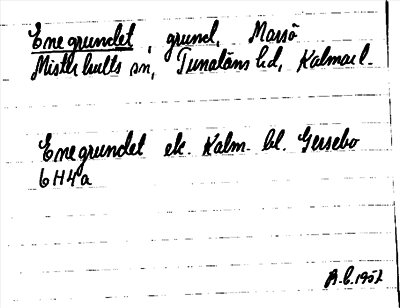 Enegrundet, grund, Marsö
Misterhults sn, Tunaläns hd, Kalmar l.
Enegrundet ek. Kalm. bl. Gersebo
6H4a
A.C. 1952